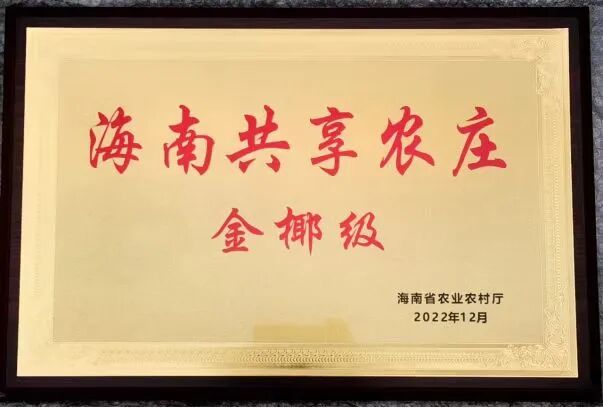 海南共享农庄
金椰级
海南省农业农村厅
2022年12月